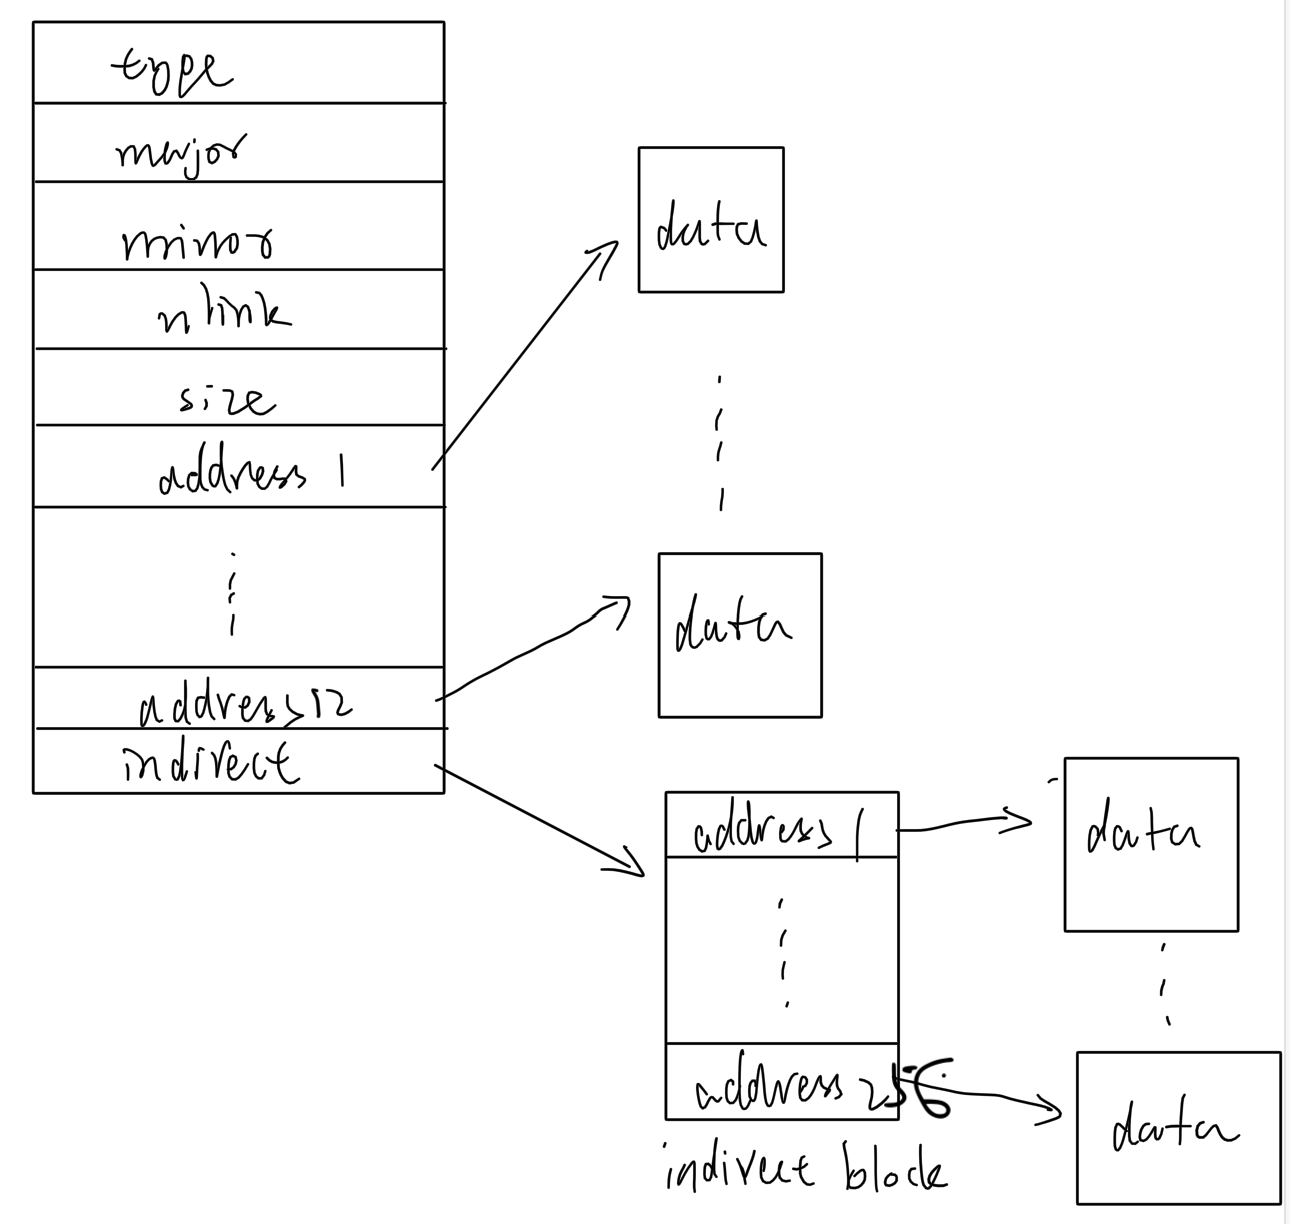 type
major
minor
nlink
size
address 1
address 12
indirect
data
data
address 1
address 256
indirect block
data
data